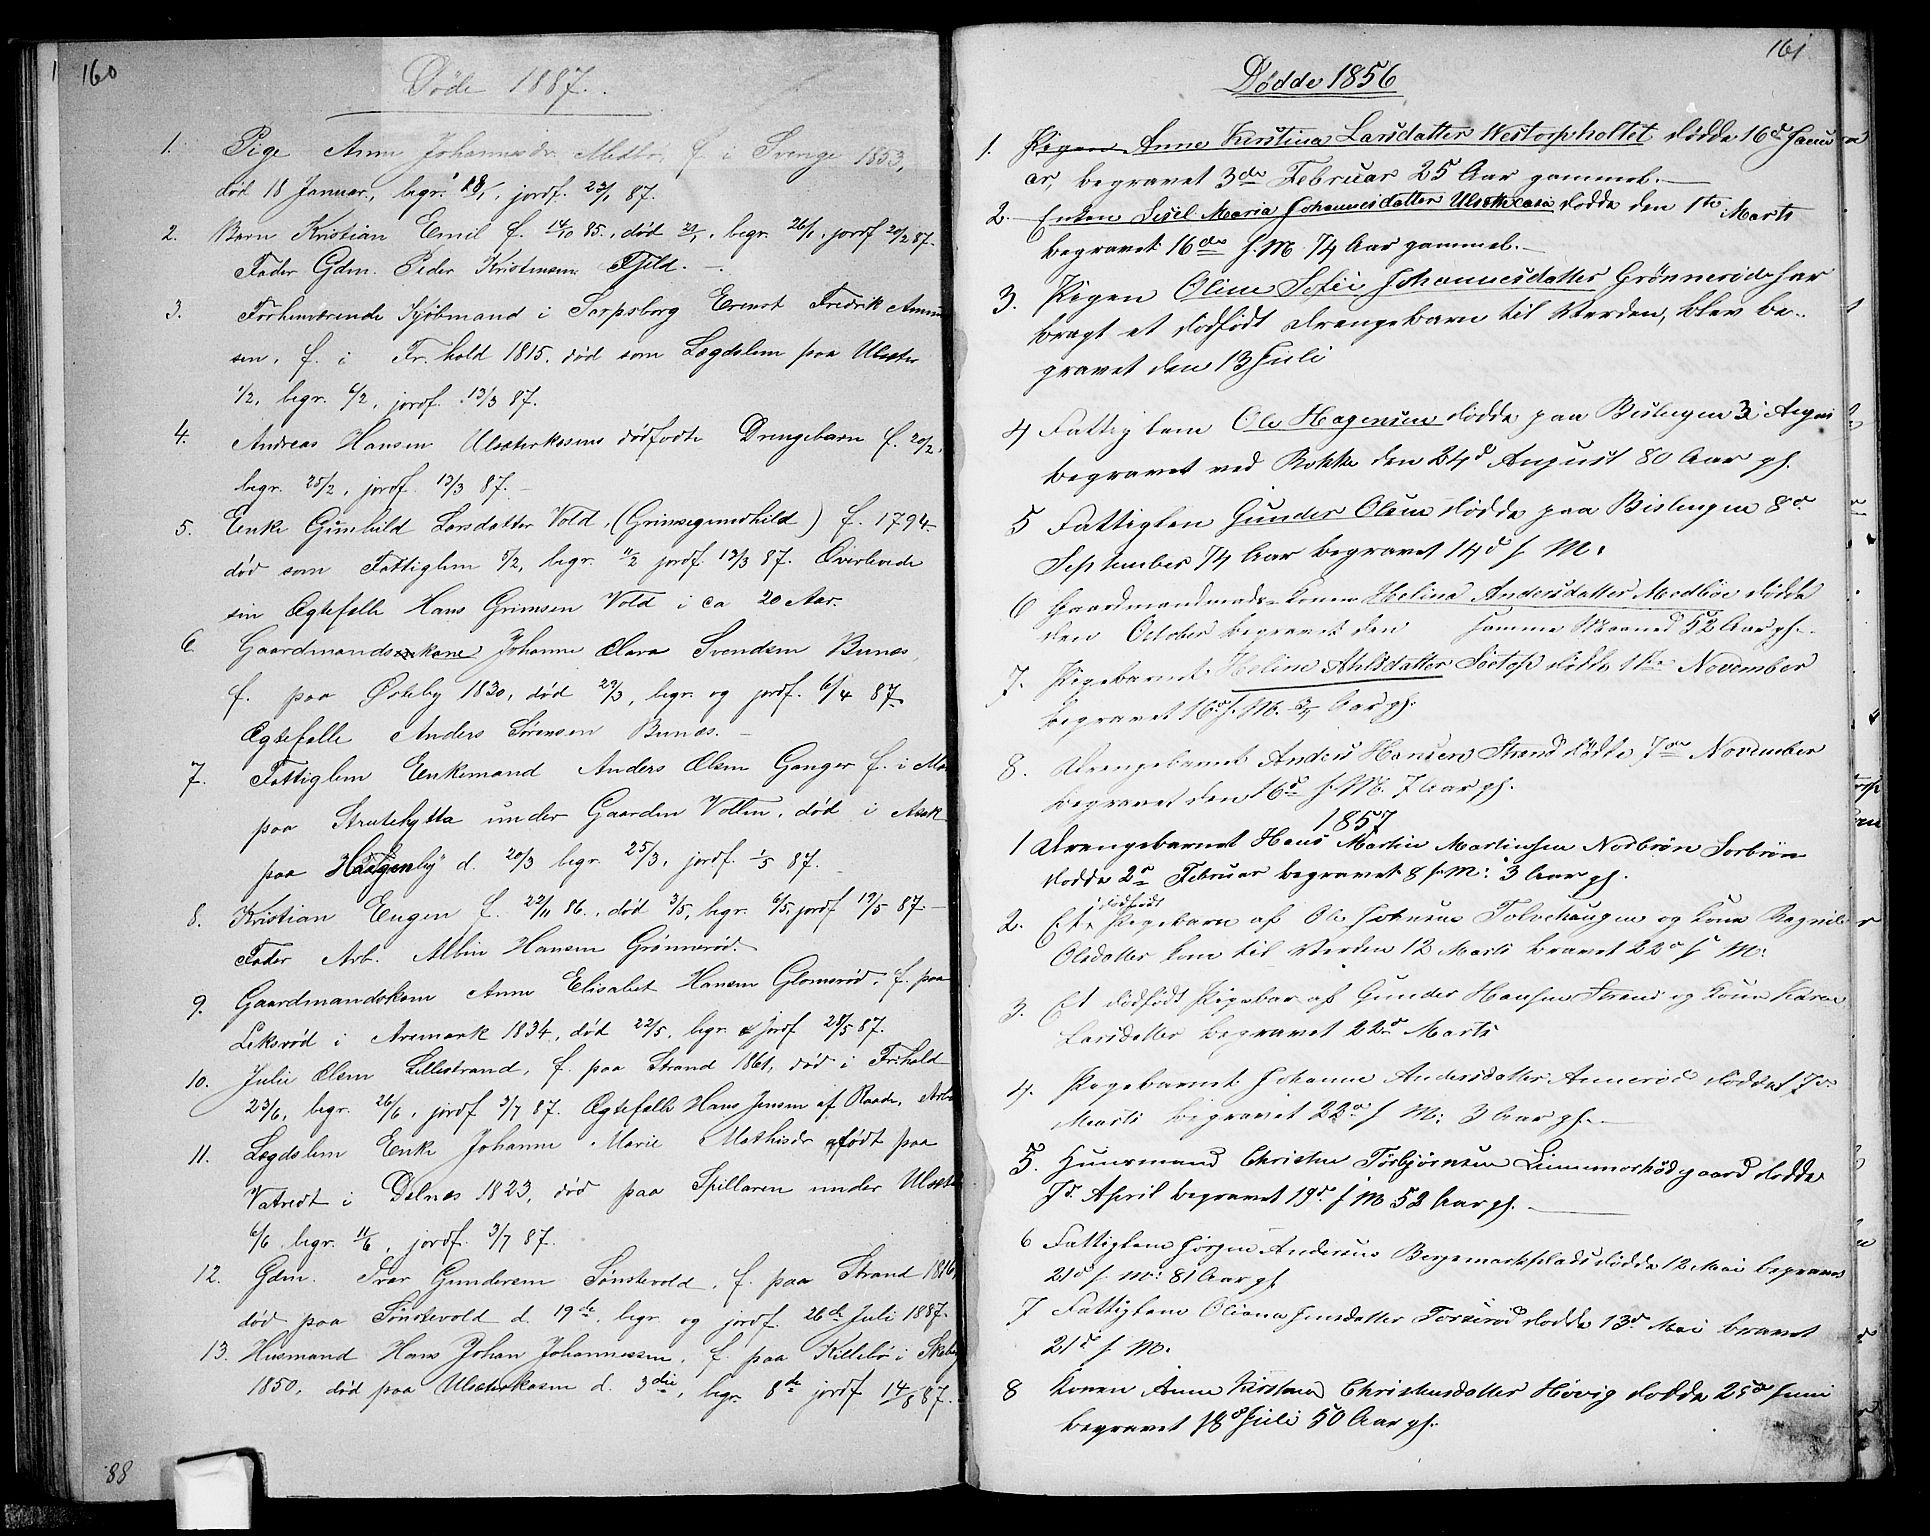 160
Døde 1887.
1. Pige Anne Johannesdr. Medbø, f. i Sverige 1853,
død 18 Januar, begr. 28/1, jordf. 23/1 87.
2. Barn Kristian Emil f. 14/10 85, død 21/1, begr. 26/1, jordf 20/2 87.
Fader Gdm. Peder Kristensen Fjeld.
3. Forhenværende Kjøbmand i Sarpsborg Ernst Fredrik Amund
sen, f. i Fr.hald 1815, død som Lægdslem paa Ulsæter
1/2, begr. 6/2, jordf. 13/3 87.
4. Andreas Hansen Ulsæterkasens dødfødte Drengebarn f. 20/2,
begr. 25/2, jordf. 13/3 87.
5. Enke Gunhild Larsdatter Vold, (Grimsegundhild) f. 1794
død som Fattiglem 5/2, begr. 11/2 jordf. 13/3 87. Overlevede
sin Ægtefelle Hans Grimsen Vold i ca 20 Aar.
6. Gaardmandskone Johanne Clara Svendsen Bunæs,
f. paa Østeby 1830, død 29/3, begr. og jordf. 6/4 87
Ægtefelle Anders Sørensen Bunæs.
7. Fattiglem Enkemand Anders Olsen Ganger f. i
paa Strutehytta under Gaarden Vollen, død i Assk
paa Haagenby d. 20/3 begr. 25/3, jordf. 1/5 87.
8. Kristian Eugen f. 22/11 86, død 3/5, begr. 6/5, jordf 19/5 87.
Fader Arb. Albin Hansen Grønnerød.
9. Gaardmandskone Anne Elisabet Hansen Glomsrød, f. paa
Leksrød i Aremark 1834, død 22/5, begr. & jordf 28/5 87.
10. Julie Olsen Lillestrand, f. paa Strand 1861, død i Fr.hald
23/6, begr. 26/6, jordf 3/7 87. Ægtefelle Hans Jensen af Raade, Arb
11. Lægdslem Enke Johanne Marie Mathisdr. født paa
Vatvedt i Dalnæs 1823, død paa Spillaren under Ulsæter
6/6 begr. 11/6, jordf. 3/7 87.
12. Gdm. Ivar Gundersen Sønstevold, f. paa Strand 1816,
død paa Sønstevold d. 19de, begr. og jordf. 26de Juli 1887.
13. Husmand Hans Johan Johannessen, f. paa Killebø i Skeby
1850, død paa Ulsæterkasen d. 3die, begr. 8de jordf 14/8 87.
88
161
Dødde 1856
1. Pigen Anne Kirstina Larsdatter Westorpholtet dødde 16d Janu
ar, begravet 3de Februar 25 Aar gammel.
2. Enken Sisel Maria Johannesdatter Ulsetkasa dødde den 1te Marts
begravet 16de s. M. 74 Aar gammel.
3. Pigen Oline Sofie Johannesdatter Grønnerød har
bragt et dødfødt Drengebarn til Verden, blev be-
gravet den 13 Juli
4 Fattiglem Ole Hagensen dødde paa Bislingen 3 August
begravet ved Rokke den 24d August 80 Aar gl.
5 Fattiglem Gunder Olsen dødde paa Bislingen 8d
September 74 Aar begravet 14d s. M.
6 Gaardmandmads Konen Helina Andersdatter Medbøe dødde
den October begravet den samme Maaned 52 Aar gl.
7. Pigebarnet Helene Axelsdatter dødde 1te November
begravet 16d s. M. 3/4 Aar gl.
8. Drengebarnet Anders Hansen Strand dødde 7de November
begravet den 16d s. M. 7 Aar gl.
1857
1 Drengebarnet Hans Martin Martinsen Nordbrøn Sorbrøn
dødde 2d Februar begravet 8 s. M: 3 Aar gl.
2. Et dødfødt Pigebarn af Ole Johnsen Tolvehaugen og Kone Ragnild
Olsdatter kom til Verden 12 Marts bravet 22d s M:
3. Et dødfødt Pigebar af Gunder Hansen Strand og Kone Karen
Larsdatter begravet 22d Marts
4. Pigebarnet Johanne Andersdatter Annerød dødde 7d
Marts begravet 22d s M: 3 Aar gl.
5. Huusmand Christen Torbjørnsen Linnmoshødgaard dødde
7d. April begravet 19d. s M 52 Aar gl.
6 Fattiglem Jørgen Andersen Bergemarkplads dødde 12 Mai begravet
21d s. M: 81 Aar gl
7 Fattiglem Oliana Jensdatter Torserød dødde 13d Mai bravet
21d s. M.
8 Konen Anne Kirstina Christensdatter Høvig dødde 25d Juni
begravet 18d Juli 50 Aar gl.